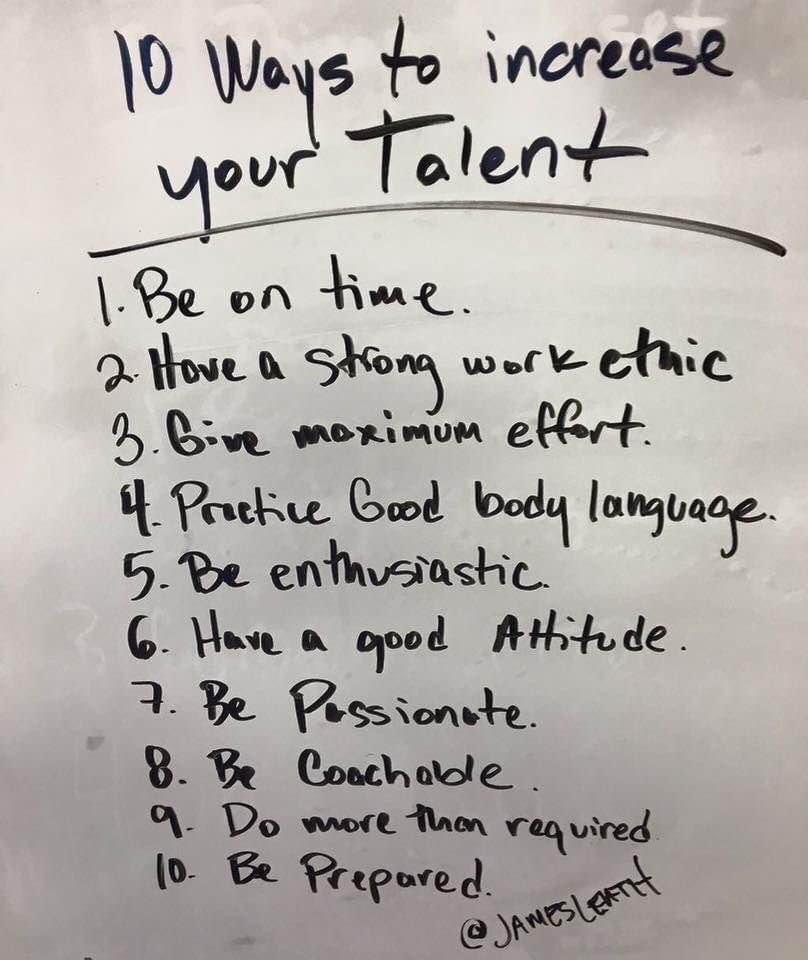 10 Ways to increase
your Talent
1. Be on time.
2. Have a strong work ethic
3. Give maximum effort.
4. Practice Good body language.
5. Be enthusiastic.
6. Have a good Attitude.
7. Be Passionate.
8. Be Coachable.
9. Do more than required
10. Be Prepared.
@JAMESLEATH